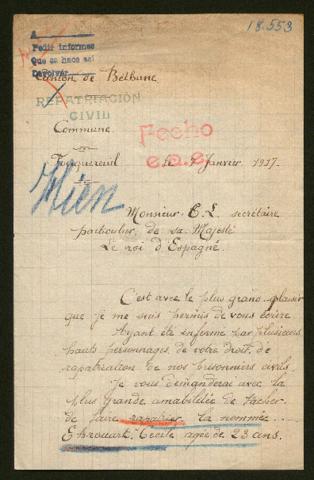 18.553
A
Pedir informes
Que se hace así
Devolver
Canton de Béthune
REPATRIACIÓN
CIVIL
Commune
Fecho
Fouquereuil le 7 Janvier 1917.
e.o.e.
Monsieur E. L. secrétaire
particulier, de sa Majesté
Le roi d'Espagne
C'est avec le plus grand plaisir
que je me suis permis de vous écrire
Ayant été informé par plusieurs
hauts personnages de votre droit de
rapatriation de nos prisonniers civils
je vous demanderai avec la
plus Grande amabilitée de tacher
de faire rapatrier la nommée
Cécile agée de 23 ans.